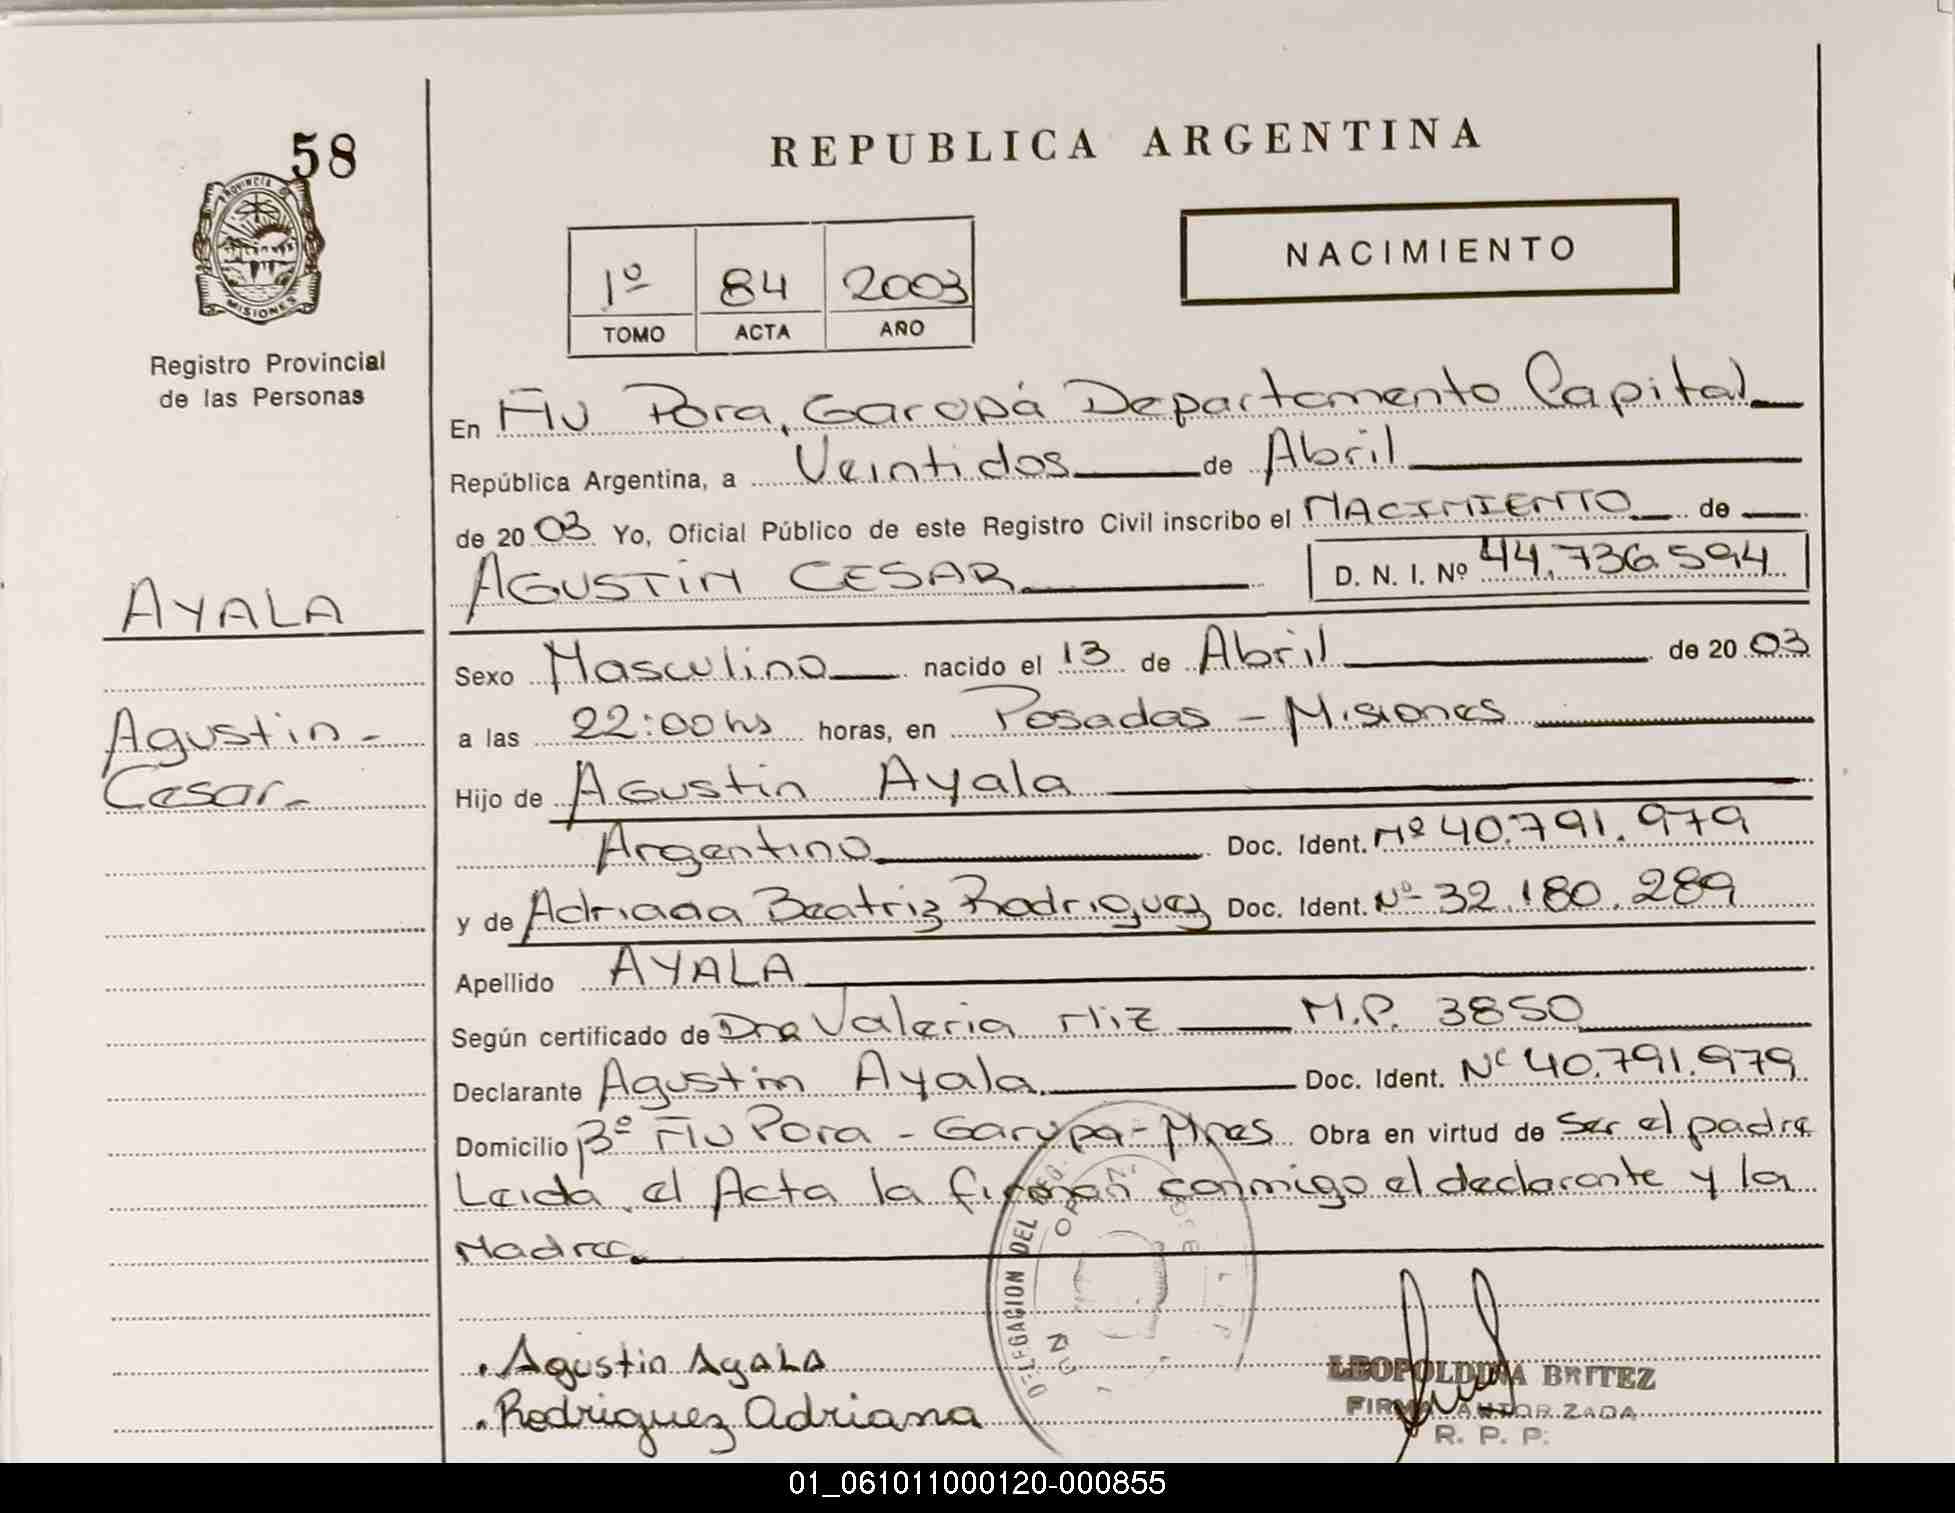 58
PROVINCIA DE
MISIONES
Registro Provincial
de las Personas
REPUBLICA ARGENTINA
NACIMIENTO
1º 84 2003
TOMO ACTA AÑO
En Fiu Pora, Garupá Departamento Capital
República Argentina, a Veintidos de Abril
de 2003 Yo, Oficial Público de este Registro Civil inscribo el NACIMIENTO de
AGUSTIN CESAR D. N. I. Nº 44.736.594
AYALA
Sexo Masculino nacido el 13 de Abril de 2003
Agustin -
Cesar.-
a las 22:00 hs horas, en Posadas - Misiones
Hijo de Agustin Ayala
Argentino Doc. Ident. Nº 40.791.979
y de Adriana Beatriz Rodriguez Doc. Ident. Nº 32.180.289
Apellido AYALA
Según certificado de Dra Valeria M.P. 3850
Declarante Agustin Ayala Doc. Ident. Nº 40.791.979
Domicilio Bº Fiu Pora - Garupa - Mnes Obra en virtud de Ser el padre
Leida el Acta la firman conmigo el declarante y la
Madre
DELEGACION DEL REG.
. Agustin AyALA
. Rodriguez Adriana
LEOPOLDINA BRITEZ
FIRMA AUTORIZADA
R. P. P.
01_061011000120-000855